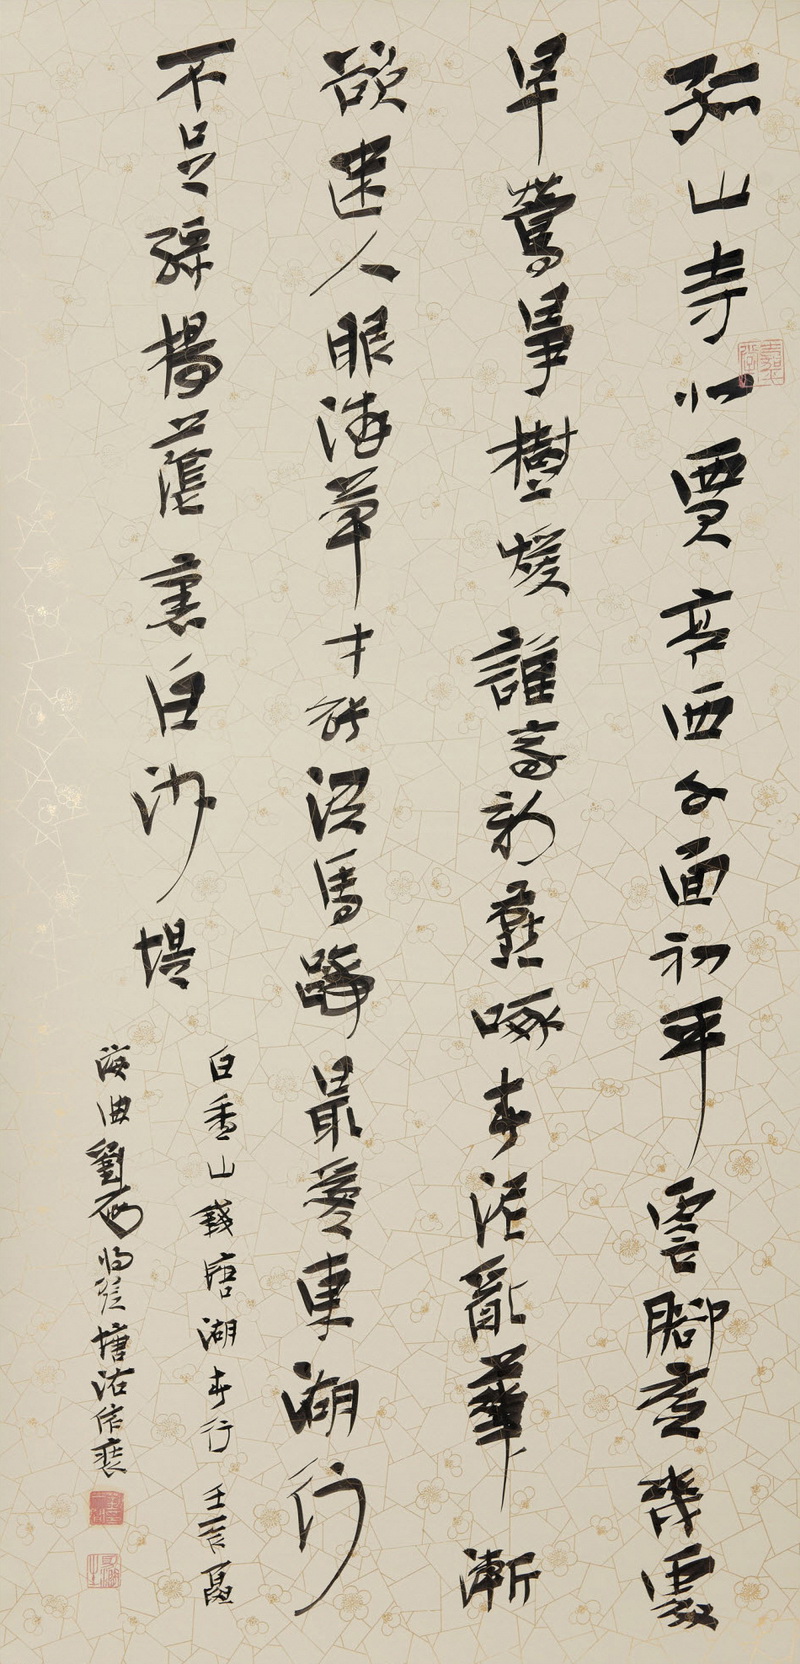 孤山寺北賈亭西水面初平雲腳低幾處
早鶯爭樹暖誰家新燕啄春泥亂華漸
欲迷人眼淺草才能沒馬蹄最愛東湖行
不足綠楊蔭裏白沙堤
白香山錢唐湖春行 壬寅夏
海曲劉塘沽